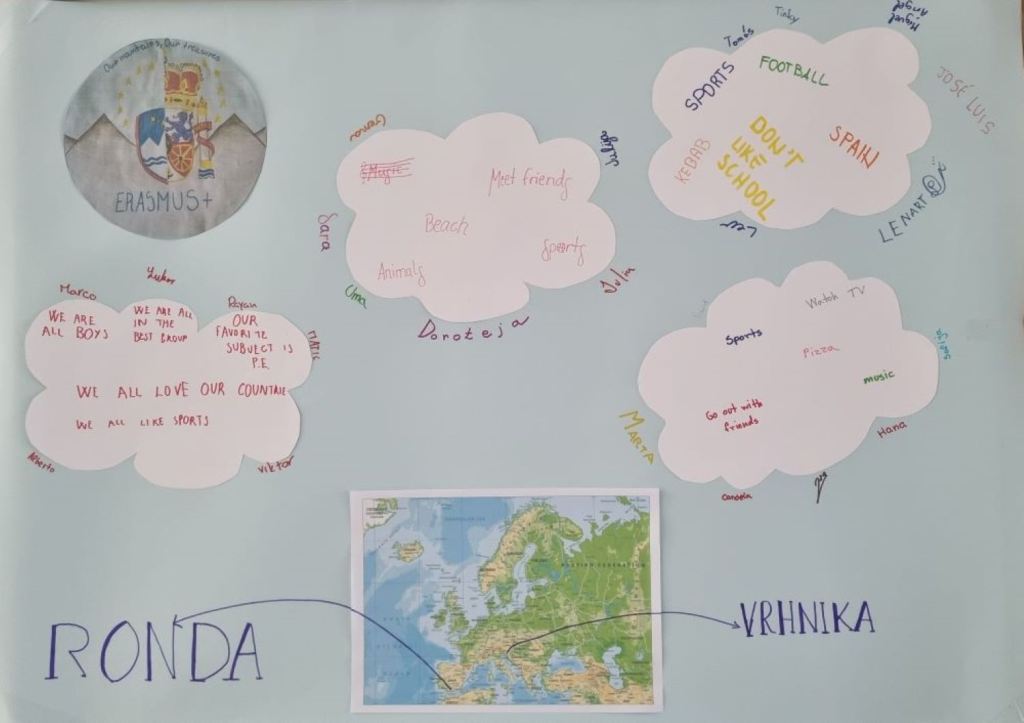 Our mountains, Our treasures
ERASMUS+
Gema
Music
Meet friends
Beach
Animals
Sports
Sara
Uma
Doroteja
Julia
Tinky
Tomás
Miguel
Angel
JOSÉ LUIS
SPORTS
FOOTBALL
KEBAB
DON'T
LIKE
SCHOOL
SPAIN
LENART
Lev
Marco
Rayan
MATIC
WE ARE
ALL BOYS
WE ARE ALL
IN THE
BEST GROUP
OUR
FAVORITE
SUBJECT IS
P.E.
WE ALL LOVE OUR COUNTRIE
WE ALL LIKE SPORTS
Alberto
Viktor
Watch TV
Sports
Pizza
music
Go out with
friends
MARTA
Candela
Hana
RONDA
VRHNIKA